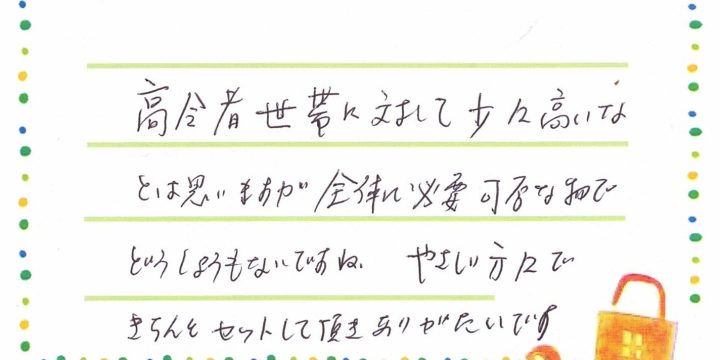 高令者世帯に対して少々高いな
とは思いますが全体に必要可否な物で
どうしようもないですね やさしい方々で
きちんとセットして頂きありがたいです